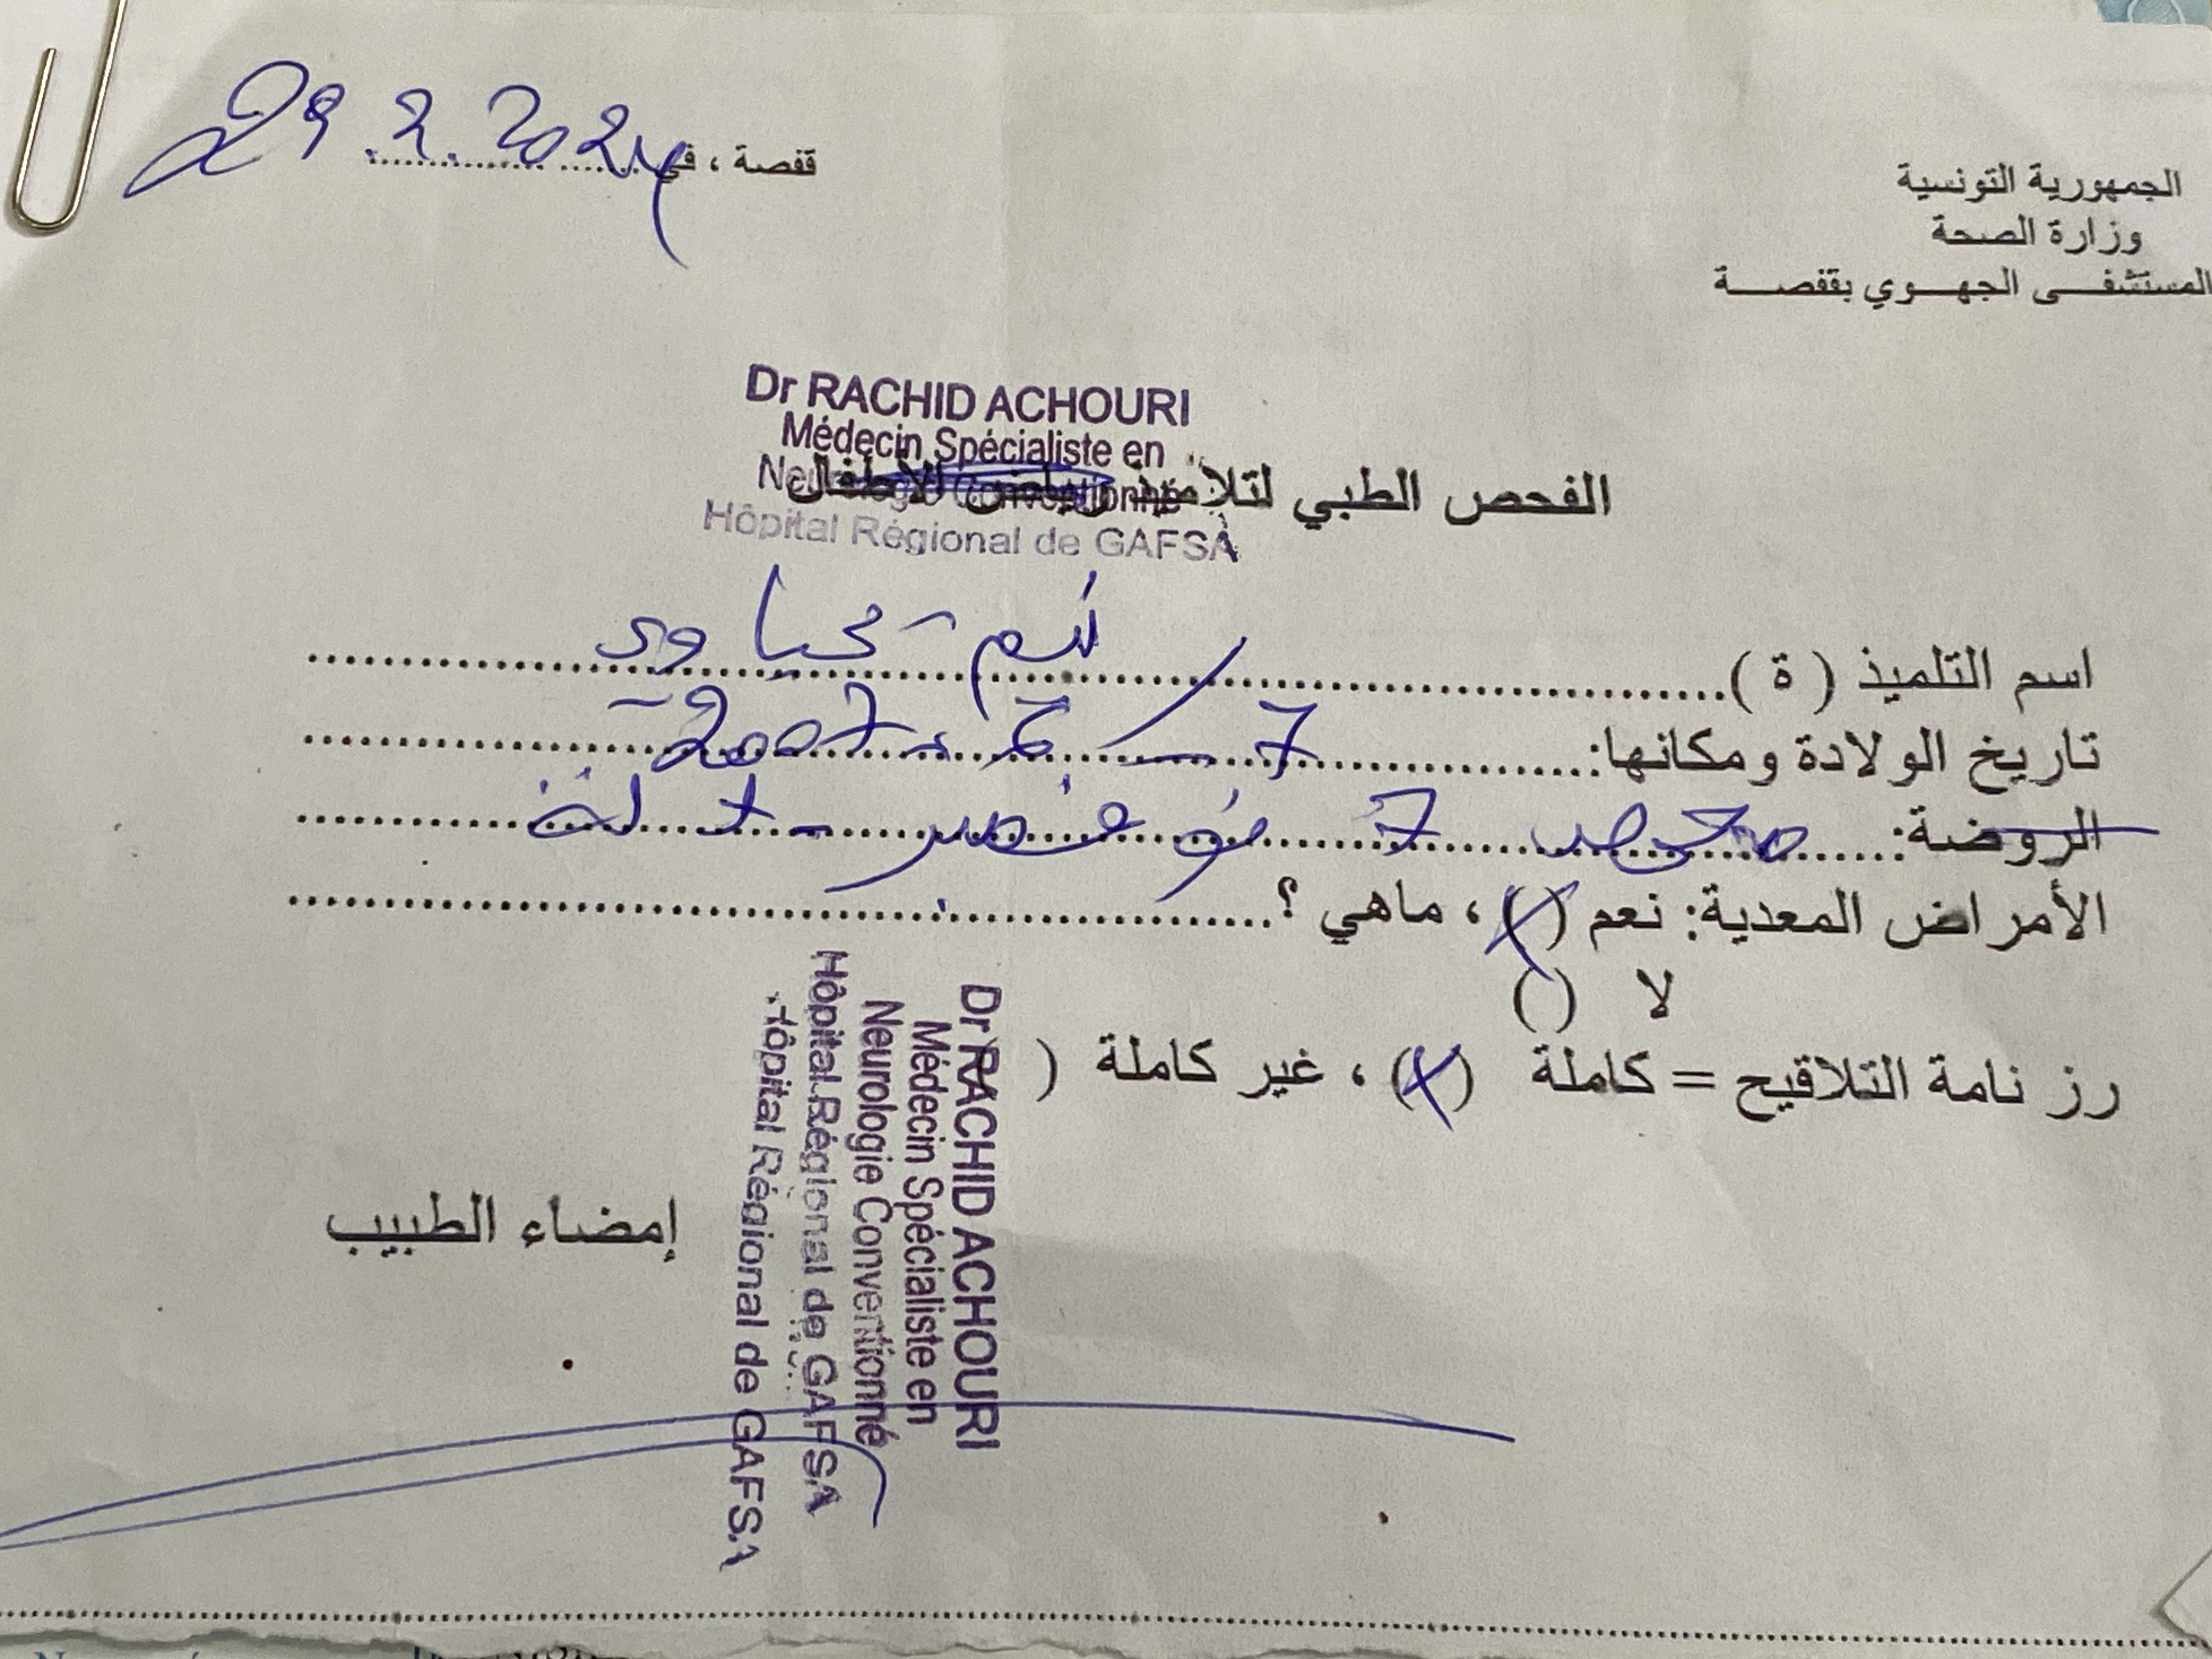 الجمهورية التونسية
وزارة الصحة
المستشفى الجهوي بقفصة
قفصة ، في 29.2.2024
Dr RACHID ACHOURI
Médecin Spécialiste en
Neurologie Conventionné
Hôpital Régional de GAFSA
الفحص الطبي لتلاميذ رياض الأطفال
اسم التلميذ ( ة )
تاريخ الولادة ومكانها: 7 2007
الروضة: 7
الأمراض المعدية: نعم (X) ، ماهي ؟
لا ( )
رزنامة التلاقيح = كاملة (X) ، غير كاملة (
Dr RACHID ACHOURI
Médecin Spécialiste en
Neurologie Conventionné
Hôpital Régional de GAFSA
Hôpital Régional de GAFSA
إمضاء الطبيب